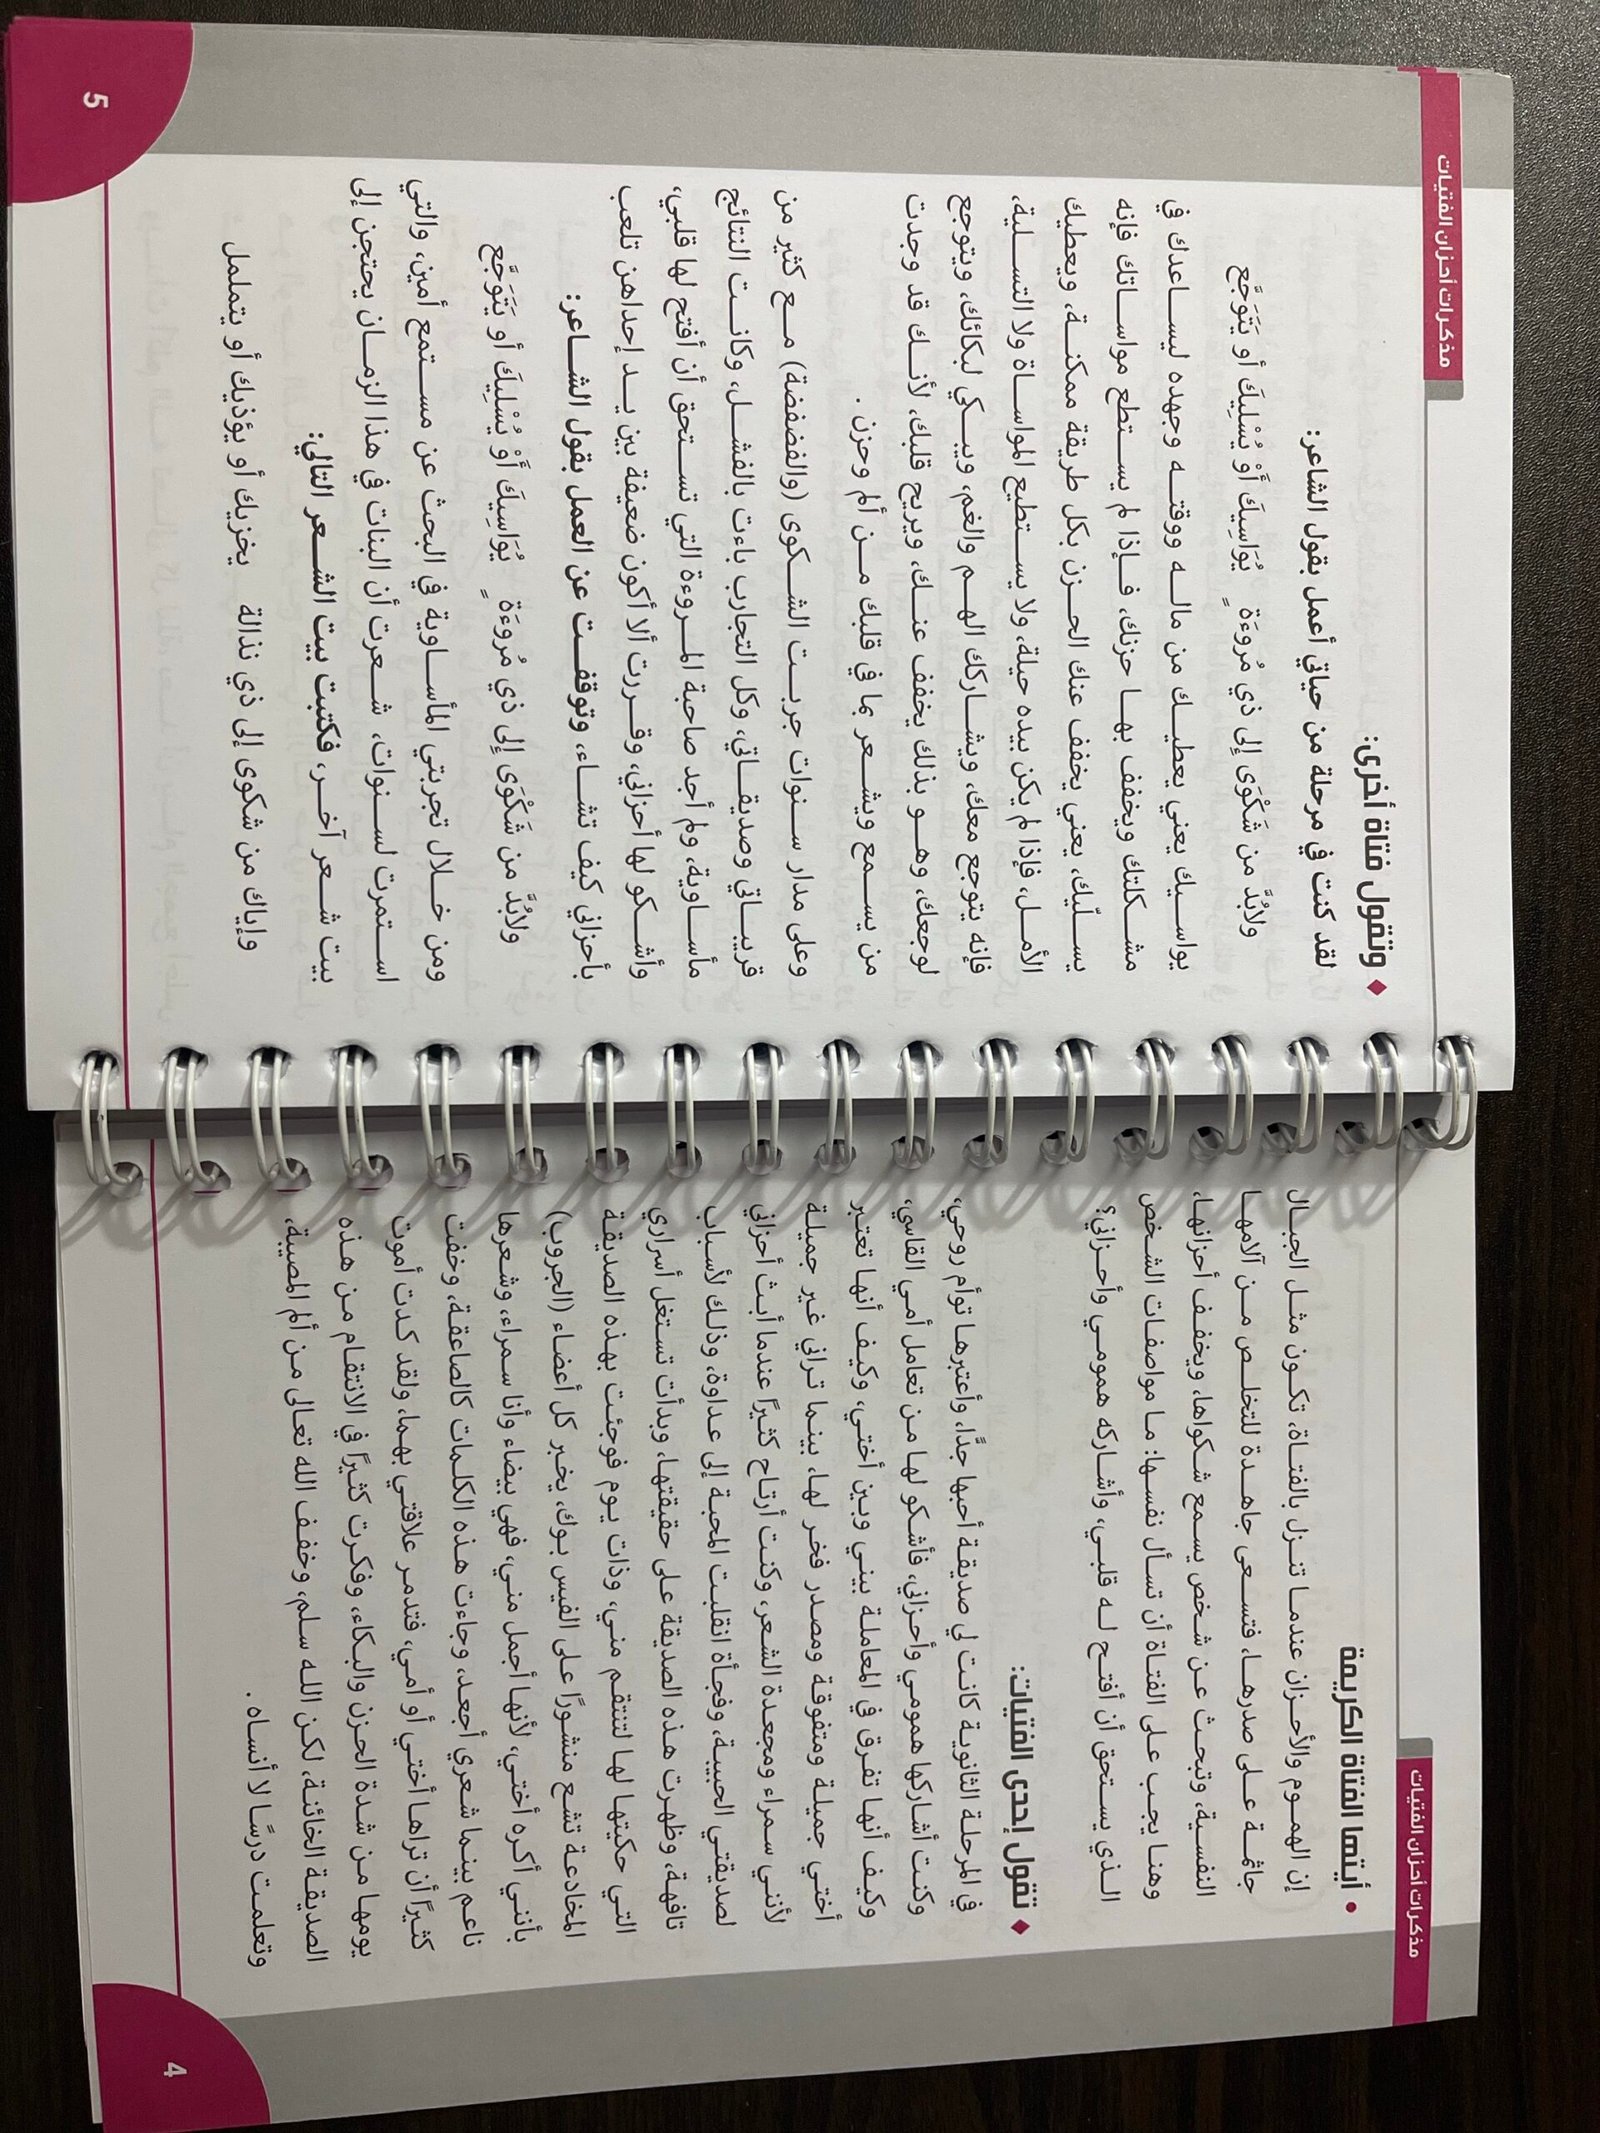 مذكرات أحزان الفتيات
• أيتها الفتاة الكريمة
إن الهموم والأحزان عندما تنزل بالفتاة، تكون مثل الجبال
جاثمة على صدرها، فتسعى جاهدة للتخلص من آلامها
النفسية، وتبحث عن شخص يسمع شكواها، ويخفف أحزانها،
وهنا يجب على الفتاة أن تسأل نفسها: ما مواصفات الشخص
الذي يستحق أن أفتح له قلبي، وأشاركه همومي وأحزاني؟
♦ تقول إحدى الفتيات:
في المرحلة الثانوية كانت لي صديقة أحبها جدًّا، وأعتبرها توأم روحي،
وكنت أشاركها همومي وأحزاني، فأشكو لها من تعامل أمي القاسي،
وكيف أنها تفرق في المعاملة بيني وبين أختي، وكيف أنها تعتبر
أختي جميلة ومتفوقة ومصدر فخر لها، بينما تراني غير جميلة
لأنني سمراء ومجعدة الشعر، وكنت أرتاح كثيرًا عندما أبث أحزاني
لصديقتي الحبيبة، وفجأة انقلبت المحبة إلى عداوة، وذلك لأسباب
تافهة، وظهرت هذه الصديقة على حقيقتها، وبدأت تستغل أسراري
التي حكيتها لها لتنتقم مني، وذات يوم فوجئت بهذه الصديقة
المخادعة تشع منشورًا على الفيس بوك، يخبر كل أعضاء (الجروب)
بأنني أكره أختي، لأنها أجمل مني، فهي بيضاء وأنا سمراء، وشعرها
ناعم بينما شعري أجعد، وجاءت هذه الكلمات كالصاعقة، وخفت
كثيرًا أن تراها أختي أو أمي، فتدمر علاقتي بهما، ولقد كدت أموت
يومها من شدة الحزن والبكاء، وفكرت كثيرًا في الانتقام من هذه
الصديقة الخائنة، لكن الله سلم، وخفف الله تعالى من ألم المصيبة،
وتعلمت درسًا لا أنساه .
4
مذكرات أحزان الفتيات
♦ وتقول فتاة أخرى:
لقد كنت في مرحلة من حياتي أعمل بقول الشاعر:
ولابُدَّ من شَكْوَى إلى ذي مُروءَةٍ يُوَاسِيكَ أَوْ يُسْلِيكَ أو يَتَوَجَّع
يواسيك يعني يعطيك من ماله ووقته وجهده ليساعدك في
مشكلتك ويخفف بها حزنك، فإذا لم يستطع مواساتك فإنه
يسلّيك، يعني يخفف عنك الحزن بكل طريقة ممكنة، ويعطيك
الأمل، فإذا لم يكن بيده حيلة، ولا يستطيع المواساة ولا التسلية،
فإنه يتوجع معك، ويشاركك الهم والغم، ويبكي لبكائك، ويتوجع
لوجعك، وهو بذلك يخفف عنك، ويريح قلبك، لأنك قد وجدت
من يسمع ويشعر بما في قلبك من ألم وحزن .
وعلى مدار سنوات جربت الشكوى (والفضفضة) مع كثير من
قريباتي وصديقاتي، وكل التجارب باءت بالفشل، وكانت النتائج
مأساوية، ولم أجد صاحبة المروءة التي تستحق أن أفتح لها قلبي،
وأشكو لها أحزاني، وقررت ألا أكون ضعيفة بين يد إحداهن تلعب
بأحزاني كيف تشاء، وتوقفت عن العمل بقول الشاعر:
ولابُدَّ من شَكْوَى إلى ذي مُروءَةٍ يُوَاسِيكَ أَوْ يُسْلِيكَ أو يَتَوَجَّع
ومن خلال تجربتي المأساوية في البحث عن مستمع أمين، والتي
استمرت لسنوات، شعرت أن البنات في هذا الزمان يحتجن إلى
بيت شعر آخر، فكتبت بيت الشعر التالي:
وإياك من شكوى إلى ذي نذالة يخزيك أو يؤذيك أو يتململ
5